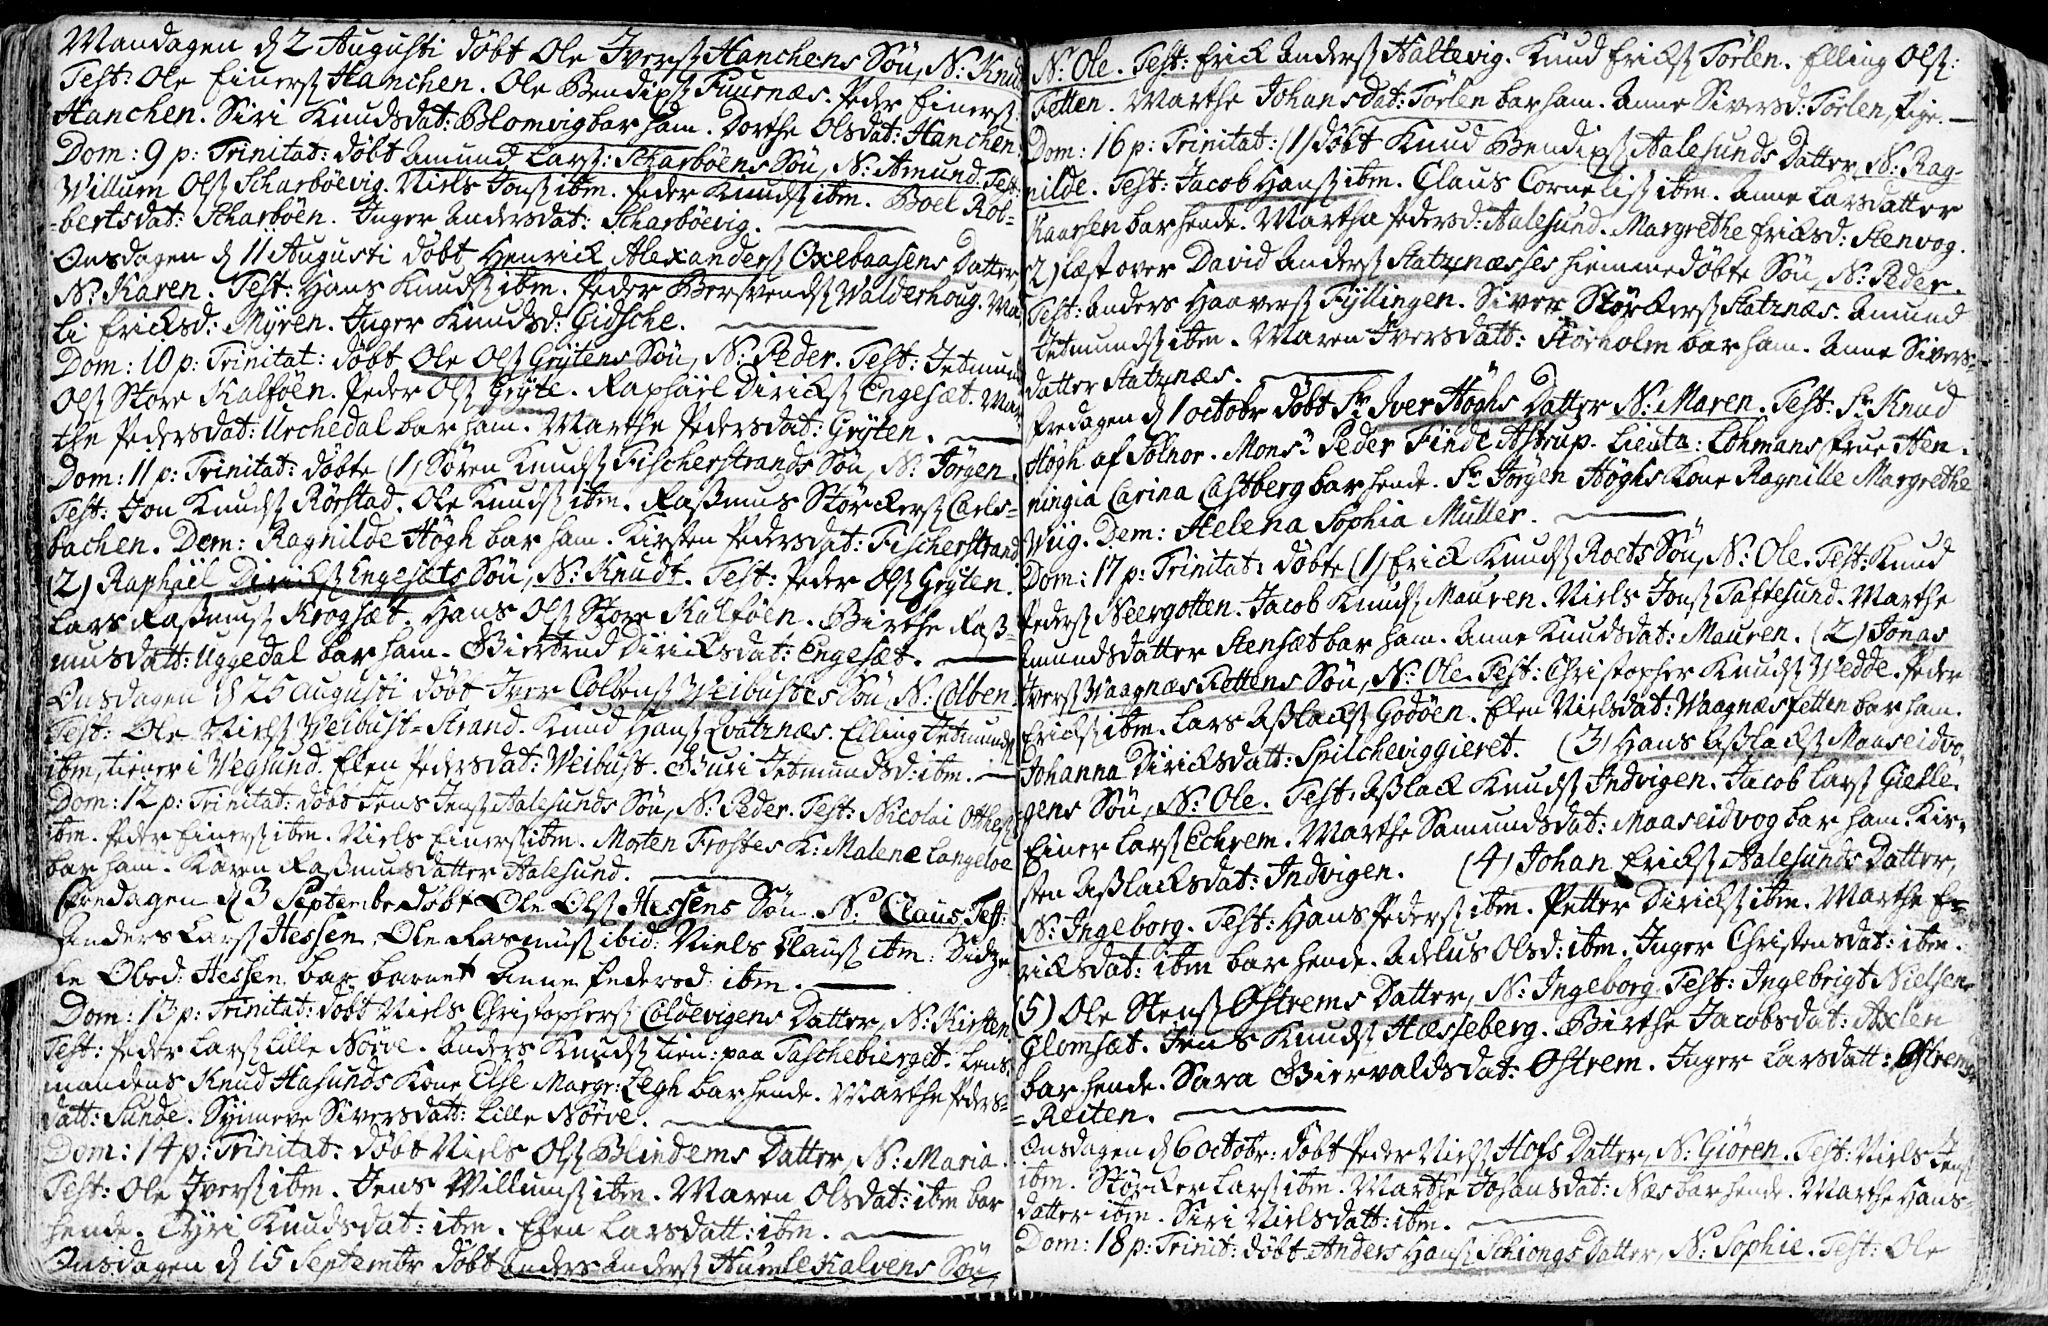 Mandagen d 2 Augusti döbt Ole Iverss Hanchens Sön, N: Knud
Test: Ole Einerss Hanchen. Ole Bendixss Fuurnæs. Peder Einerss:
Hanchen. Siri Knudsdat: Blomvig bar ham. Dorthe Olsdat: Hanchen.
Dom: 9 p: Trinitat: döbt Amund Larss: Scharböens Sön, N: Amund. Test:
Willum Olss Scharböevig. Niels Jonss ibm. Peder Knudss ibm. Boel Rob-
=bertsdat: Scharböen. Inger Andersdat: Scharböevig.
Onsdagen d 11 Augusti döbt Henrick Alexanderss Oxebaasens Datter,
N: Karen. Test: Hans Knudss ibm. Peder Bersvendss Walderhoug. Ma-
li Ericksd: Myren. Inger Knudsd: Gidsche.
Dom: 10 p: Trinitat: döbt Ole Olss Grytens Sön, N: Peder. Test: Jetmund
Olss Store Kalföen. Peder Olss Gryte. Raphael Dirickss Engesæt. Mar-
the Pedersdat: Urchedal bar ham. Marthe Pedersdat: Gryten.
Dom: 11 p: Trinitat: döbte (1) Sören Knudss Fischerstrands Sön, N: Jörgen.
Test: Jon Knudss Rörstad. Ole Knudss ibm. Rassmus Störckerss Carls-
bachen. Dem: Ragnilde Högh bar ham. Kirsten Pedersdat: Fischerstrand.
(2) Raphael Dirickss Engesets Sön, N: Knudt. Test: Peder Olss Gryten.
Lars Rassmuss Krogsæt. Hans Olss Store Kalföen. Birthe Rass-
musdatt: Uggedal bar ham. Giertrud Diricksdat: Engesæt.
Onsdagen d 25 augusti döbt Iver Colbenss Weibustes Sön, N: Colben.
Test: Ole Nielss Weibust-Strand. Knud Hanss Qvatznæs. Elling Jetmundss
ibm, tiener i Wegsund. Elen Pedersdat: Weibust. Guri Jetmundsd: ibm.
Dom: 12 p: Trinitat: döbt Jens Jenss Aalesunds Sön, N: Peder. Test: Nicolai Otthess
ibm. Peder Einerss ibm. Niels Einerss ibm. Morten Frostes K: Malene Langeloe
bar ham. Karen Rassmusdatter Aalesund.
Fredagen d 3 Septembr döbt Ole Olss Hessens Sön N: Claus Test:
Anders Larss Hessen. Ole Rasmuss ibid: Niels Clauss ibm: Sidze
le Olsd: Hessen bar barnet Anne Pedersd: ibm.
Dom: 13 p: Trinitat: döbt Niels Christopherss Coldevigens Datter, N: Kirsten
Test: Peder Larss Lille Nörve. Anders Knudss tien: paa Taschebierget. Lens-
mandens Knud Hasunds Kone Else Margr: Legh bar hende. Marthe Peders-
datt: Sunde. Synneve Siversdatt: Lille Nörve.
Dom: 14 p: Trinitat: döbt Niels Olss Blindems Datter, N: Maria.
Test: Ole Iverss ibm. Jens Willumss ibm. Maren Olsdat: ibm bar
hende. Cyri Knudsdat: ibm. Elen Larsdatt: ibm.
Onsdagen d 15 Septembr döbt Anders Anderss Humlekalvens Sön,
N: Ole. Test: Erick Anderss Haltevig. Knud Erickss Törlen. Elling Olss:
Fetten. Marthe Johansdat: Törlen bar ham. Anne Siversd: Törlen, Pige.
Dom: 16 p: Trinitat: (1) döbt Knud Bendixss Aalesunds Datter, N: Rag-
nilde. Test: Jacob Hanss ibm. Claus Corneliss ibm. Anne Larsdatter
Kaarsen bar hende. Martha Pedersd: Aalesund. Margrethe Ericksd: Stenvog.
2) læst over David Anderss Statznæsses hiemmedöbte Sön, N: Peder.
Test: Anders Haaverss Fyllingen. Siver Störckerss Statznæs. Amund
Jetmundss ibm. Maren Iversdatt: Storholm bar ham. Anne Sivers-
datter Statznæs.
Fredagen d 1 octobr döbt Sr Iver Höghs Datter N: Maren. Test: Sr Knud
Högh af Solnor. Monsr Peder Finde Astrup. Lieuta: Lohmans frue Hen-
ningia Carina Castberg bar hende. Sr Jörgen Höghs Kone Ragnille Margrethe
Wiig. Dem: Helena Sophia Muller.
Dom: 17 p: Trinitat: döbte (1) Erick Knudss Roets Sön, N: Ole. Test: Knud
Pederss Neergotten. Jacob Knudss Mauren. Niels Jonss Taftesund. Marthe
Amundsdatter Stensæt bar ham. Anne Knudsdat: Mauren. (2) Jonas
Iverss Waagnæs Fettens Sön, N: Ole. Test: Christopher Knudss Wedde. Peder
Erickss ibm. Lars Asslackss Godöen. Elen Nielsdat: Waagnæsfetten bar ham.
Johanna Diricksdatt: Spilcheviggieret. (3) Hans Asslackss Maaseidvo-
gens Sön, N: Ole. Test: Asslack Knudss Indvigen. Jacob Larss Gielle.
Einer Larss Echrem. Marthe Samundsdat: Maaseidvog bar ham. Kir-
sten Asslacksdat: Indvigen. (4) Johan Erickss Aalesunds Datter,
N: Ingeborg. Test: Hans Pederss ibm. Petter Dirickss ibm. Marthe Er-
ricksdat: ibm bar hende. Adelus Olsd: ibm. Inger Christensdat: ibm.
(5) Ole Stenss Östrems Datter, N: Ingeborg. Test: Ingebrigt Nielsen
Glomsæt. Jens Knudss Hæsseberg. Birthe Jacobsdat: Axlen
bar hende. Sara Giervaldsdat: Östrem. Inger Larsdatt: Östrems
=Reiten.
Onsdagen d 6 Octobr: döbt Peder Nielss Hofs Datter, N: Giören. Test: Niels Jenss
ibm. Störcker Larss ibm. Marthe Johansdat: Næs bar hende. Marthe Hans-
datter ibm. Siri Nielsdatt: ibm.
Dom: 18 p: Trinit: döbt Anders Hanss Schiongs Datter, N: Sophie. Test: Ole